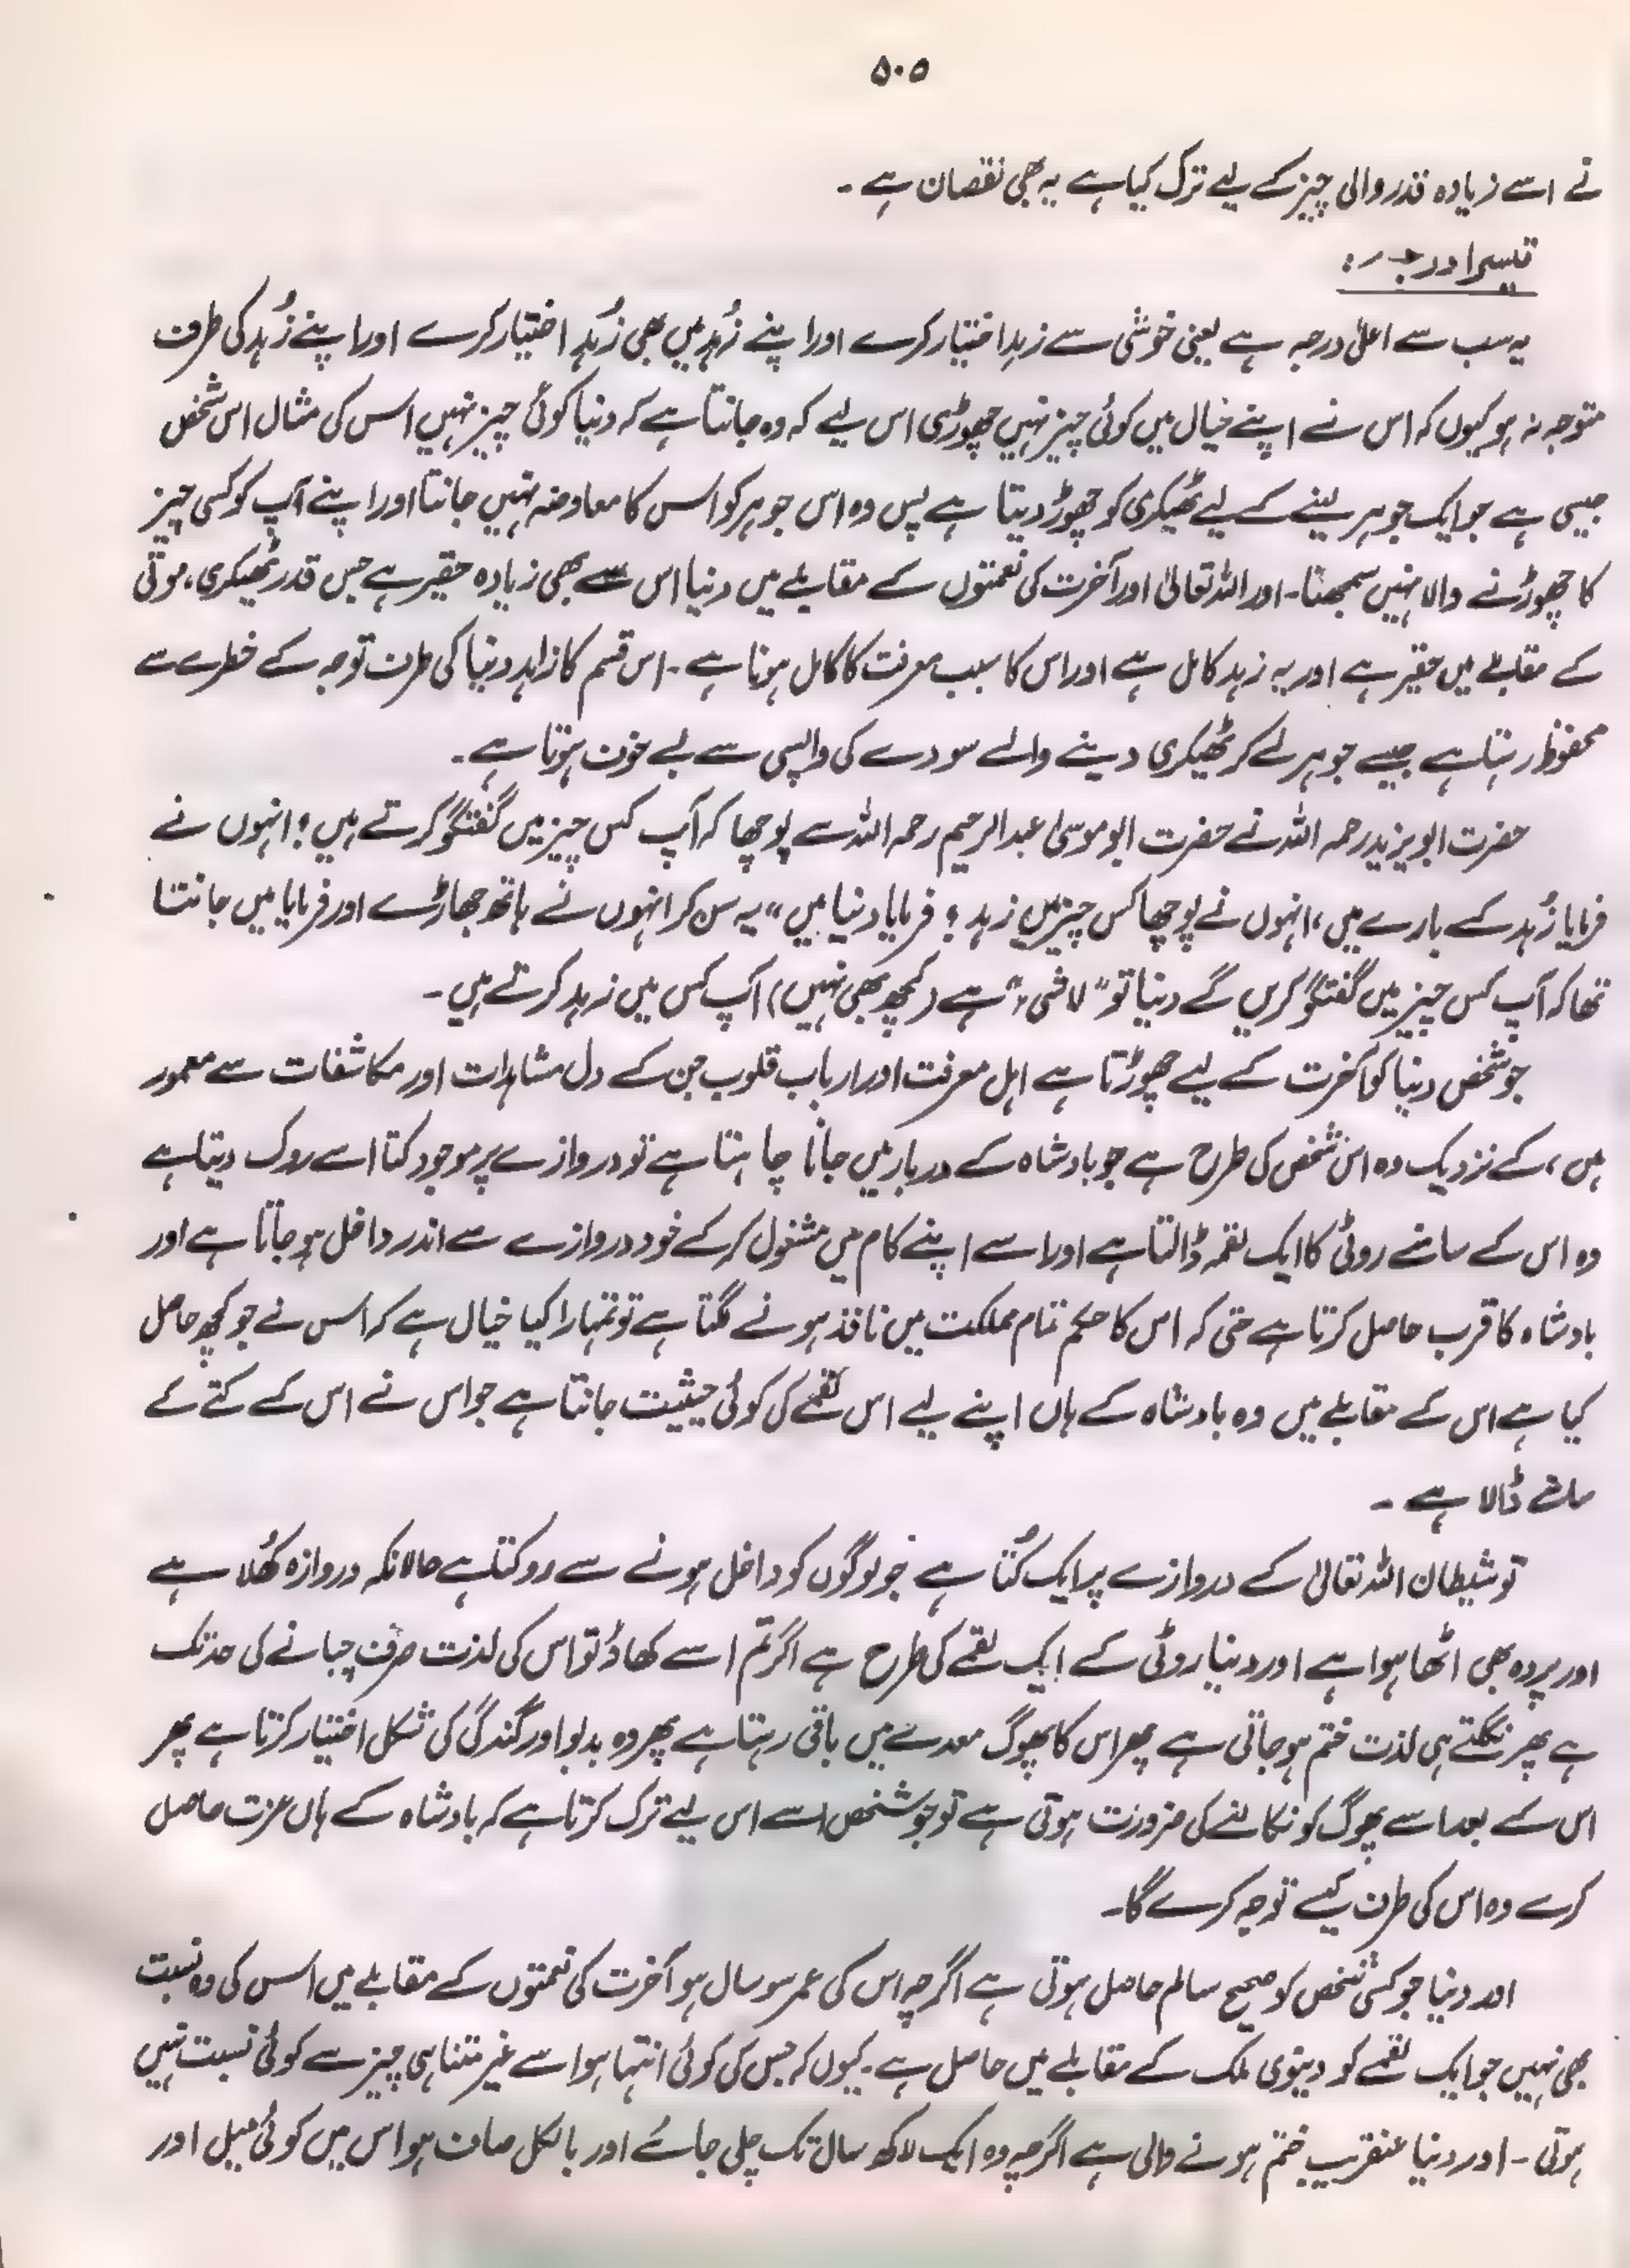 ۵۰۵
نے اسے زیادہ قدر والی چیز کے لیے ترک کیا ہے یہ بھی نقصان ہے ۔
تیسرا درجہ :
یہ سب سے اعلیٰ درجہ ہے یعنی خوشی سے زہد اختیار کرے اور اپنے زُہد میں بھی زُہد اختیار کرے اور اپنے زُہد کی طرف
متوجہ نہ ہو کیوں کہ اس نے اپنے خیال میں کوئی چیز نہیں چھوڑی اس لیے کہ وہ جانتا ہے کہ دنیا کوئی چیز نہیں اس کی مثال اس شخص
جیسی ہے جو ایک جوہر لینے کے لیے ٹھیکری کو چھوڑ دیتا ہے پس وہ اس جوہر کو اس کا معاوضہ نہیں جانتا اور اپنے آپ کو کسی چیز
کا چھوڑنے والا نہیں سمجھتا۔ اور اللہ تعالیٰ اور آخرت کی نعمتوں کے مقابلے میں دنیا اس سے بھی زیادہ حقیر ہے جس قدر ٹھیکری، موتی
کے مقابلے میں حقیر ہے اور یہ زہد کامل ہے اور اس کا سبب معرفت کا کامل ہونا ہے ۔ اس قسم کا زاہد دنیا کی طرف توجہ کے خطرے سے
محفوظ رہتا ہے جیسے جوہر لے کر ٹھیکری دینے والے سودے کی واپسی سے بے خوف ہوتا ہے ۔
حضرت ابویزید رحمہ اللہ نے حضرت ابو موسیٰ عبدالرحیم رحمہ اللہ سے پوچھا کہ آپ کس چیز میں گفتگو کرتے ہیں ؟ انہوں نے
فرمایا زُہد کے بارے میں، انہوں نے پوچھا کس چیز میں زہد ؟ فرمایا دنیا میں “ یہ سن کر انہوں نے ہاتھ جھاڑے اور فرمایا میں جانتا
تھا کہ آپ کس چیز میں گفتگو کریں گے دنیا تو ” لا شیٔ “ ہے (کچھ بھی نہیں) آپ کس میں زہد کرتے ہیں ۔
جو شخص دنیا کو آخرت کے لیے چھوڑتا ہے اہل معرفت اور ارباب قلوب جن کے دل مشاہدات اور مکاشفات سے معمور
ہیں، کے نزدیک وہ اس شخص کی طرح ہے جو بادشاہ کے دربار میں جانا چاہتا ہے تو دروازے پر موجود کتا اسے روک دیتا ہے
وہ اس کے سامنے روٹی کا ایک لقمہ ڈالتا ہے اور اسے اپنے کام میں مشغول کر کے خود دروازے سے اندر داخل ہو جاتا ہے اور
بادشاہ کا قرب حاصل کرتا ہے حتی کہ اس کا حکم تمام مملکت میں نافذ ہونے لگتا ہے تو تمہارا کیا خیال ہے کہ اس نے جو کچھ حاصل
کیا ہے اس کے مقابلے میں وہ بادشاہ کے ہاں اپنے لیے اس لقمے کی کوئی حیثیت جانتا ہے جو اس نے اس کے کتے کے
سامنے ڈالا ہے ۔
تو شیطان اللہ تعالیٰ کے دروازے پر ایک کُتا ہے جو لوگوں کو داخل ہونے سے روکتا ہے حالانکہ دروازہ کھُلا ہے
اور پردہ بھی اٹھا ہوا ہے اور دنیا روٹی کے ایک لقمے کی طرح ہے اگر تم اسے کھاؤ تو اس کی لذت صرف چبانے کی حد تک
ہے پھر نگلتے ہی لذت ختم ہو جاتی ہے پھر اس کا پھوگ معدے میں باقی رہتا ہے پھر وہ بدبو اور گندگی کی شکل اختیار کرتا ہے پھر
اس کے بعد اسے پھوگ کو نکالنے کی ضرورت ہوتی ہے تو جو شخص اسے اس لیے ترک کرتا ہے کہ بادشاہ کے ہاں عزت حاصل
کرے وہ اس کی طرف کیسے توجہ کرے گا۔
اور دنیا جو کسی شخص کو صحیح سالم حاصل ہوتی ہے اگرچہ اس کی عمر سو سال ہو آخرت کی نعمتوں کے مقابلے میں اس کی وہ نسبت
بھی نہیں جو ایک لقمے کو دنیوی ملک کے مقابلے میں حاصل ہے۔ کیوں کہ جس کی کوئی انتہا ہو اسے غیر متناہی چیز سے کوئی نسبت نہیں
ہوتی ۔ اور دنیا عنقریب ختم ہونے والی ہے اگرچہ وہ ایک لاکھ سال تک چلی جائے اور بالکل صاف ہو اس میں کوئی میل اور